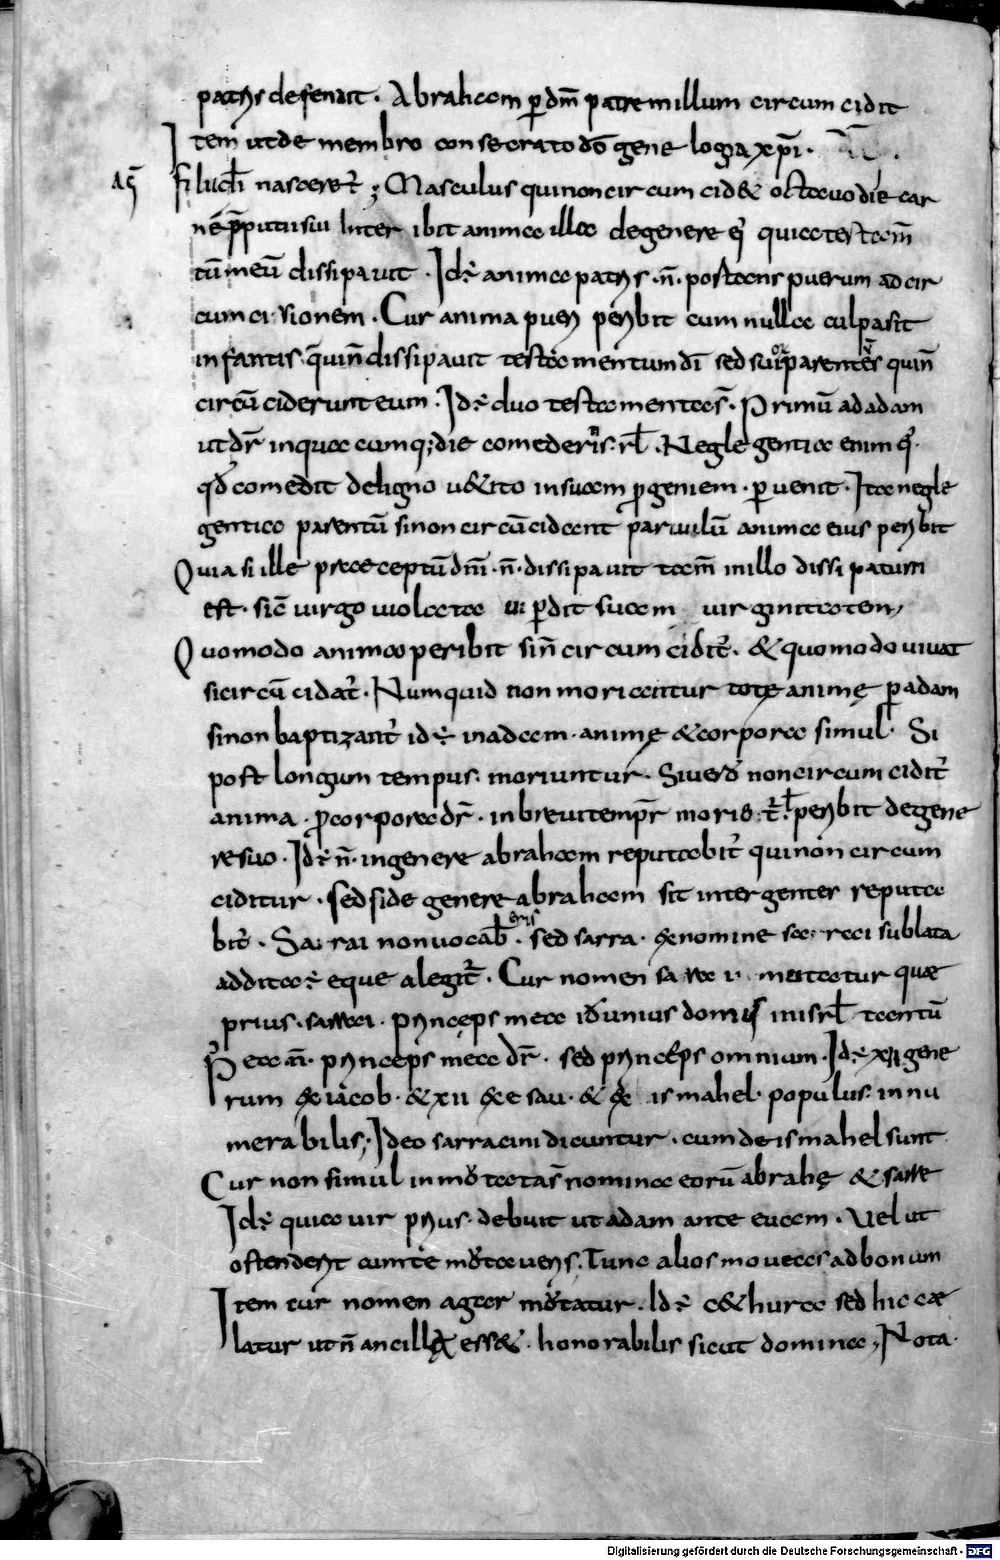 patris defendit · Abraham p̄ dm̄ patrem illum circumcidit
Item ut de membro consecrato dō genelogia xp̄i ·
aḡ filii dī nasceret᷑ ; Masculus qui non circumcid& octauo die car
nē p̄putii sui Inter ibit anima illa de genere ei᷒ quia testam̄
tū meū dissipauit · Id ÷ anima patris · n̄ · postans puerum ad cir
cumcisionem · Cur anima pueri peribit cum nulla culpa sit
infantis · q̄ui n̄ dissipauit testamentum dī sed suor̄ parentes quī n̄
circū ciderunt eum · Id ÷ duo testamentas̄ · Primū ad adam
ut dr̄ in quacumq; die comederitis · rł · Neglegentia enim ei᷒
qđ comedit de ligno u&ito in suam ꝓgeniem · puenit · Ita negle
gentia parentū si non circūcidant paruulū anima eius peribit
Quia si ille praeceptū dm̄i · n̄ · dissipauit tam̄ in illo dissipatum
est · sic̄ uirgo uiolata p̄dit suam uirginitatem,
Quomodo anima peribit si n̄ circumcidit᷑ · & quomodo uiuat
si circū cidat᷑ · Numquid non moriantur totę animę p̄ adam
si non baptizant᷑ id ÷ in adam · animę & corpora simul · Si
post longum tempus · moriuntur · Si uerō non circumcidit᷑
anima · ꝓ corpora dr̄ · in breui tempr̄ peribit de gene
re suo · Id ÷ n̄ · in genere abraham reputabit᷑ qui non circum
ciditur · sed si de genere abraham sit inter gentes reputa
bit᷑ · Sarai non uocab̄eris · sed sarra · & nomine sublata
addita ÷ eque a legit᷑ · Cur nomen mutatur quae
prius · sarrai · princeps mea id unius domus in isrł tantū
Pea n̄ · princeps mea dr̄ · sed princeps omnium · Id ÷ xii gene
rum ex iacob · & xii ex esau · & ex ismahel · populus · innu
merabilis ; Ideo sarracini dicuntur · cum de ismahel sunt
Cur non simul inmōtatas̄ nomina eorū abrahę & sarre
Id ÷ quia uir prius · debuit ut adam ante euam · Uel ut
ostenderit cunte mōta ueris · Tunc alios moueas ad bonum
Item cur nomen agar mōtatur · Id ÷ c&hura sed hic cae
latur ut n̄ ancillę ess& · honorabilis sicut domina ; Nota ·
Digitalisierung gefördert durch die Deutsche Forschungsgemeinschaft - DFG